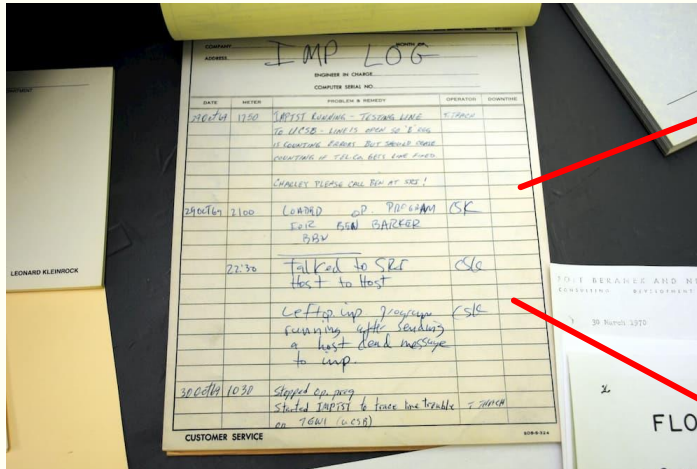 COMPANY
MONTH OF
ADDRESS
IMP LOG
ENGINEER IN CHARGE
COMPUTER SERIAL NO.
DATE METER PROBLEM & REMEDY OPERATOR DOWNTIME
29Oct69 1750 IMPTST RUNNING - TESTING LINE
TO UCSB - LINE IS OPEN SO 'B' REG
IS COUNTING ERRORS BUT SHOULD
COUNTING IF TELCO. GETS LINE FIXED.
CHARLEY PLEASE CALL BEN AT SRI!
29OCT69 2100 LOADED OP. PROGRAM CSK
FOR BEN BARKER
BBN
22:30 Talked to SRI CSK
Host to Host
Left op. imp program CSK
running after sending
a host dead message
to imp.
30Oct69 1030 Stopped op. prog
Started IMPTST to trace line trouble T. THACH
on (UCSB)
CUSTOMER SERVICE
LEONARD KLEINROCK
BERANEK AND
CONSULTING DEVELOPMENT
30 March 1970
FLO